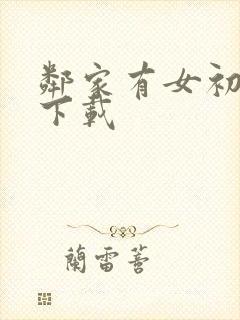 鄰家有女初
下載
蘭雷蓉